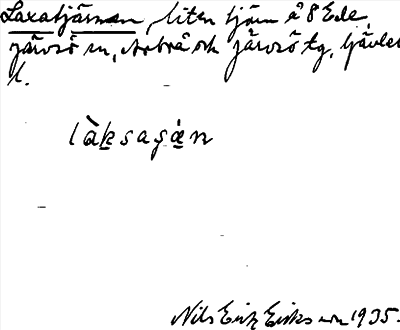 Laxatjärnen, liten tjärn å 8 Ede,
järvsö sn, Arbrå och järvsö tg, Gävleb
l.
làksaçæ̀n
Nils Erik Eriksson 1935.